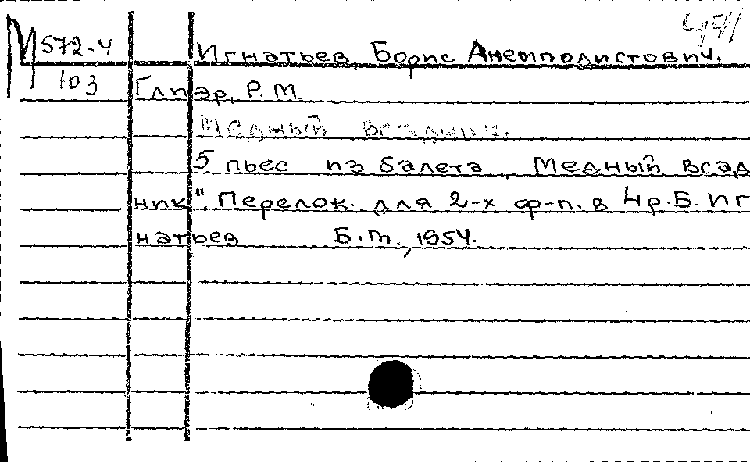 491
М 572-4 Игнатьев, Борис Анемподистович.
103 Глиэр, Р.М.
Медный всадник.
5 пьес из балета „Медный всад
ник". Перелож. для 2-х ф-п. в 4 р. Б. Иг
натьев Б.м., 1954.